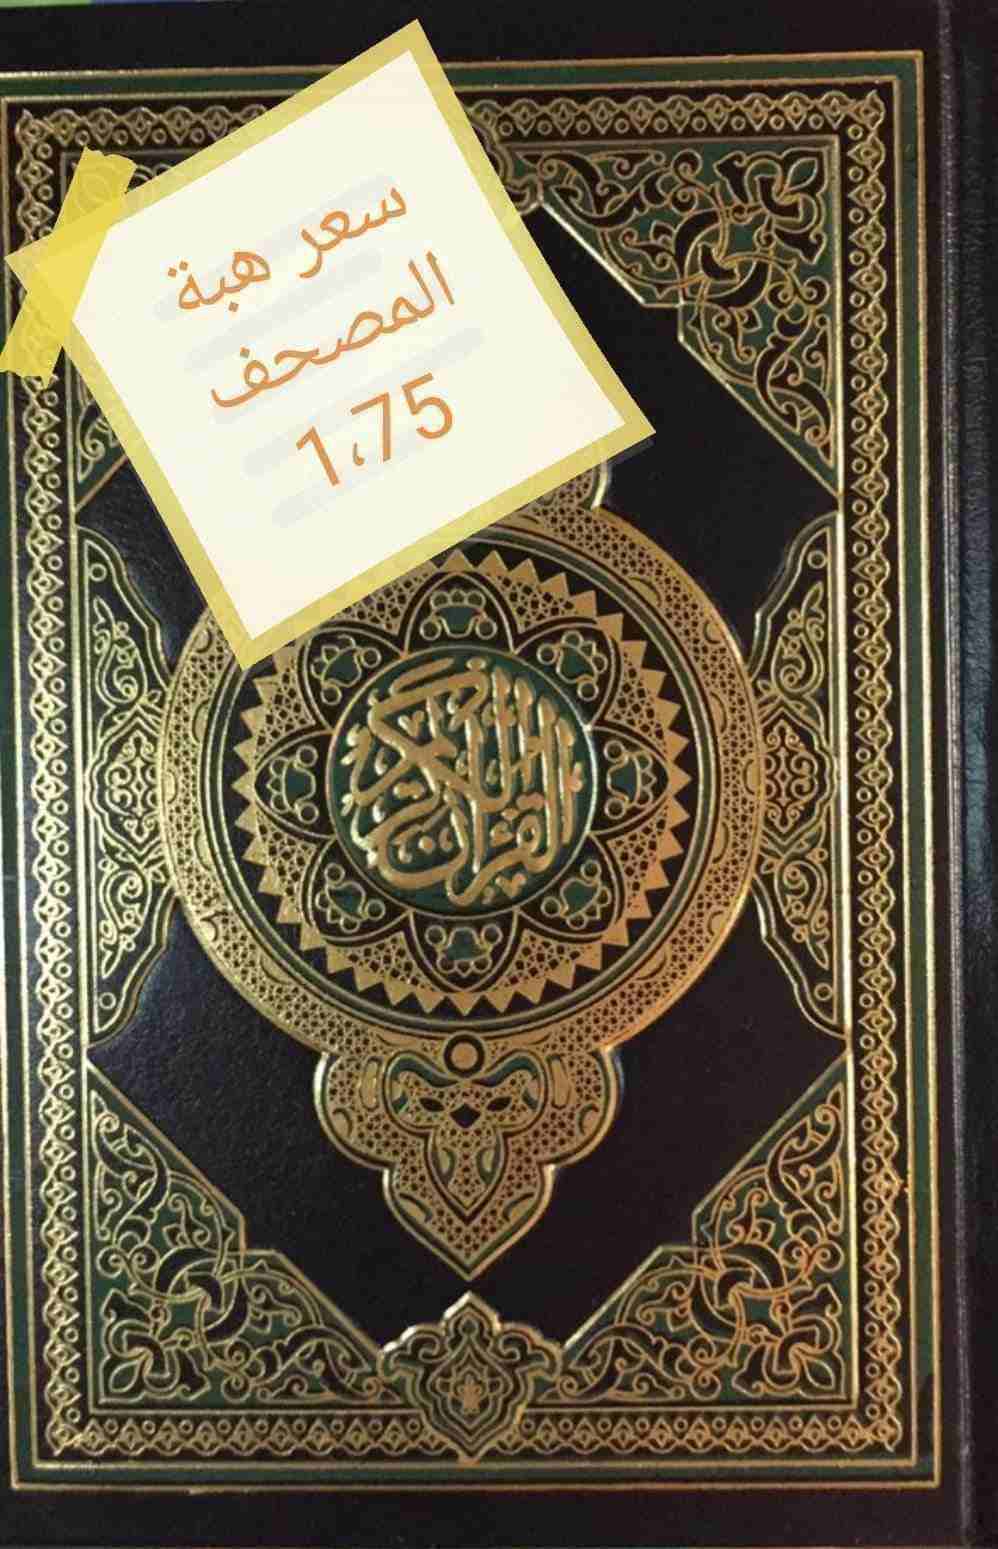 سعر هبة
المصحف
1،75
القرآن الكريم